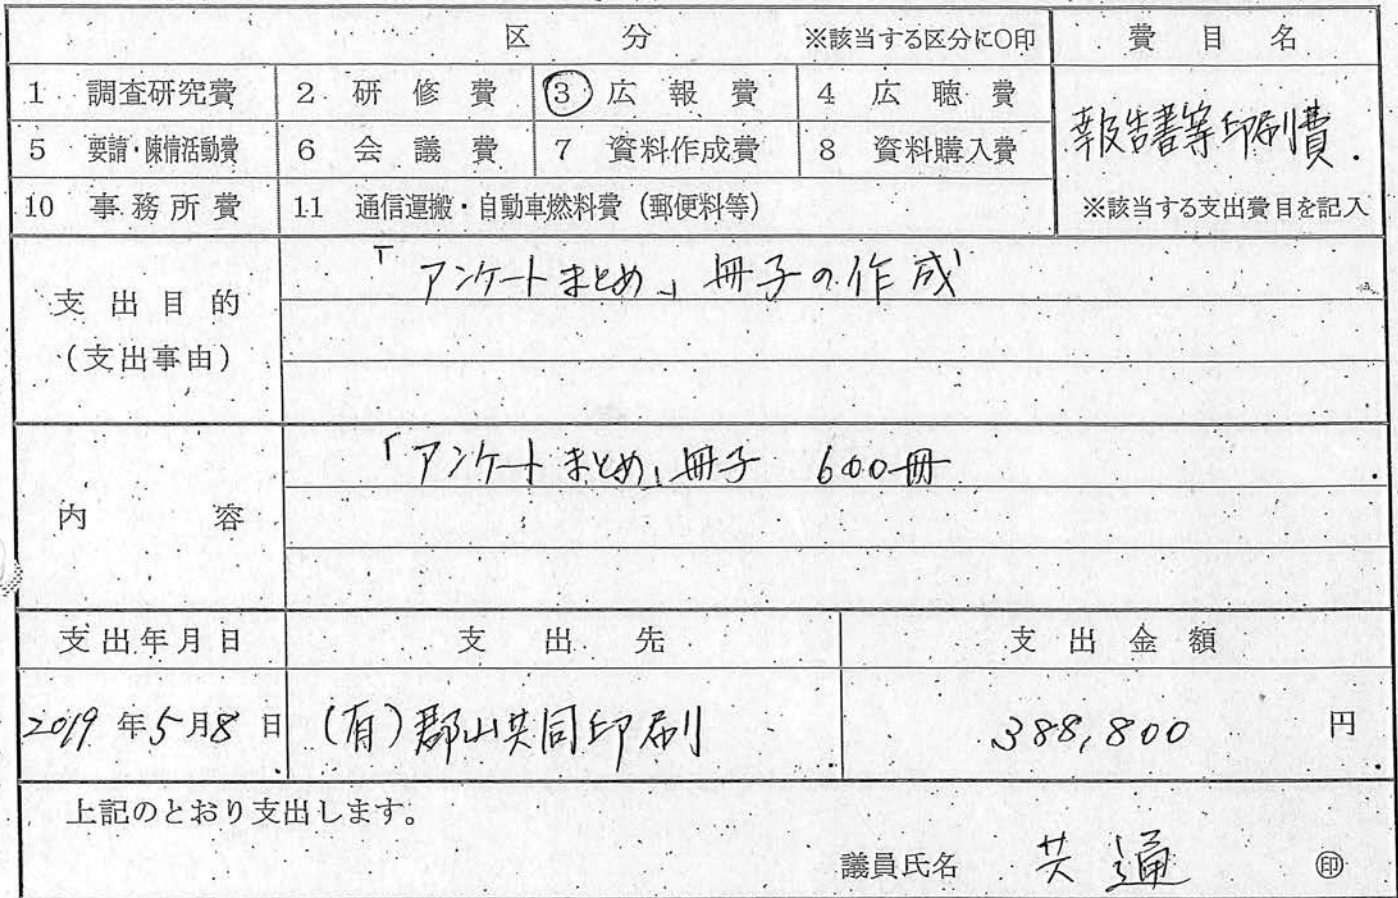 区分 ※該当する区分に○印 費目名
1 調査研究費 2 研修費 ③ 広報費 4 広聴費
報告書等印刷費.
5 要請・陳情活動費 6 会議費 7 資料作成費 8 資料購入費
10 事務所費 11 通信運搬・自動車燃料費（郵便料等） ※該当する支出費目を記入
支出目的
（支出事由）
「アンケートまとめ」冊子の作成
内容
「アンケートまとめ」冊子 600冊
支出年月日 支出先 支出金額
2019年5月8日 (有)郡山共同印刷 388,800 円
上記のとおり支出します。
議員氏名 共通 ㊞